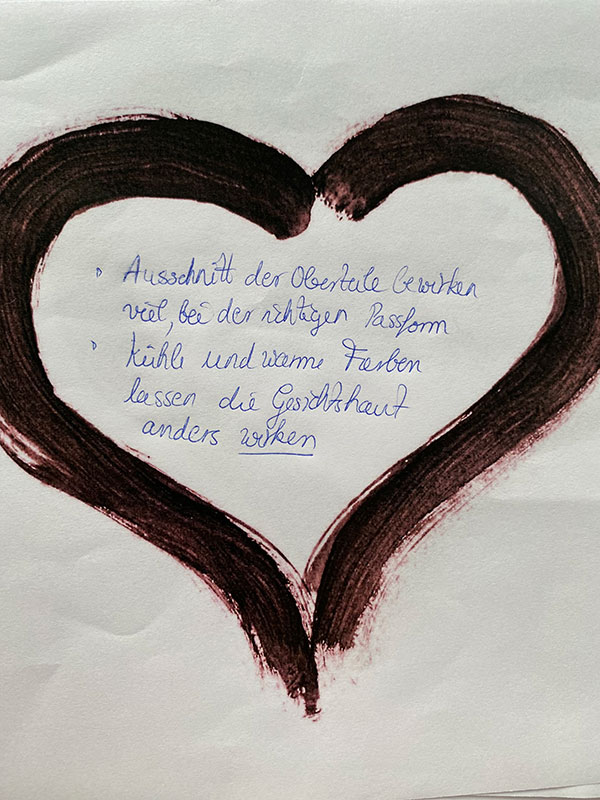 • Ausschnitt der Oberteile bewirken
viel, bei der richtigen Passform
• Kühle und warme Farben
lassen die Gesichtshaut
anders wirken